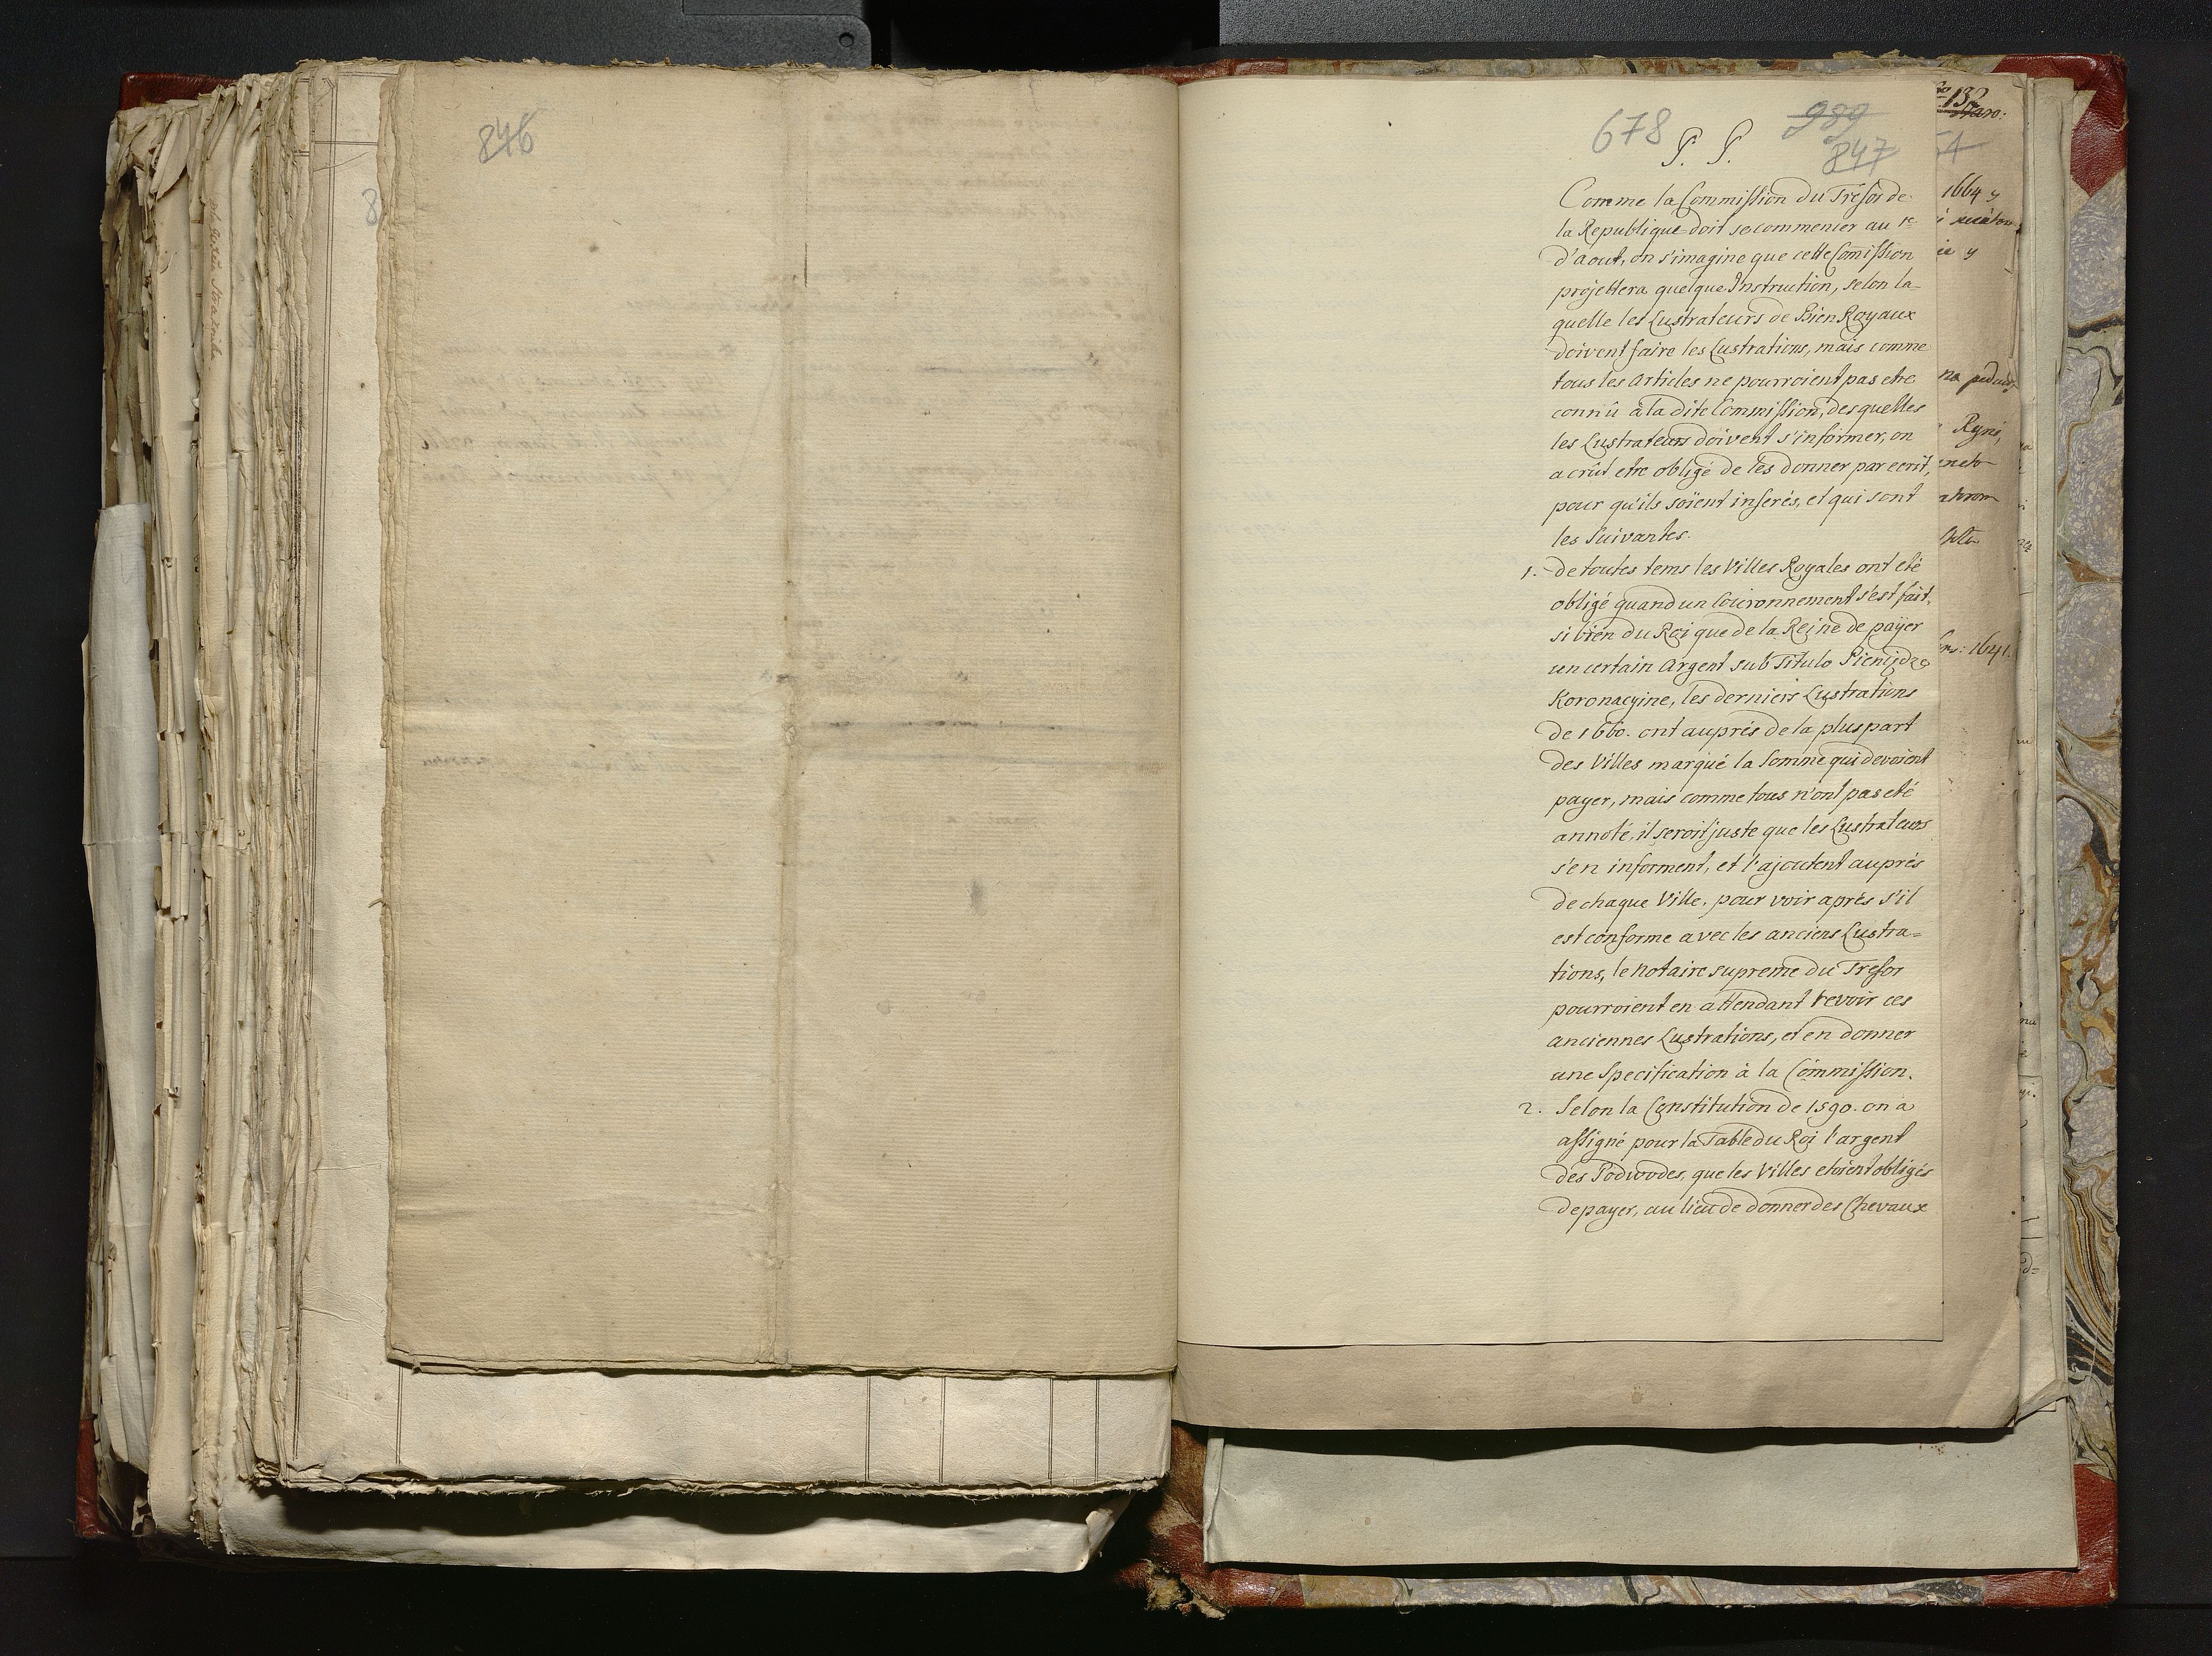 846
678
989
847
P. P.
Comme la Commission du Trésor de
la Republique doit se commencer au 1r
d'aout, on s'imagine que cette Comission
projettera quelque Instruction, selon la-
quelle les Lustrateurs de Bien Royaux
doivent faire les Lustrations, mais comme
tous les Articles ne pourroient pas etre
connû à la dite Commission, des quelles
les Lustrateurs doivent s'informer, on
a crût etre obligé de les donner par ecrit,
pour qu'ils soïent inserés, et qui sont
les Suivantes.
1. de toutes tems les Villes Royales ont eté
obligé quand un Couronnement s'est fait,
si bien du Roi que de la Reine de païer
un certain Argent sub Titulo Pieniądze
Koronacyine, les derniers Lustrations
de 1660. ont auprés de la pluspart
des Villes marqué la Somme qui devoient
payer, mais comme tous n'ont pas eté
annoté, il seroit juste que les Lustrateurs
s'en informent, et l'ajoutent auprés
de chaque Ville, pour voir aprés s'il
est conforme avec les anciens Lustra=
tions, le Notaire supreme du Tresor
pourroient en attendant revoir ces
anciennes Lustrations, et en donner
une Specification à la Commission.
2. Selon la Constitution de 1590. on a
assigné pour la Table du Roi l'argent
des Podwodes, que les Villes etoient obligés
de payer, au lieu de donner des Chevaux
132
1664 y
Ryni,
1641.